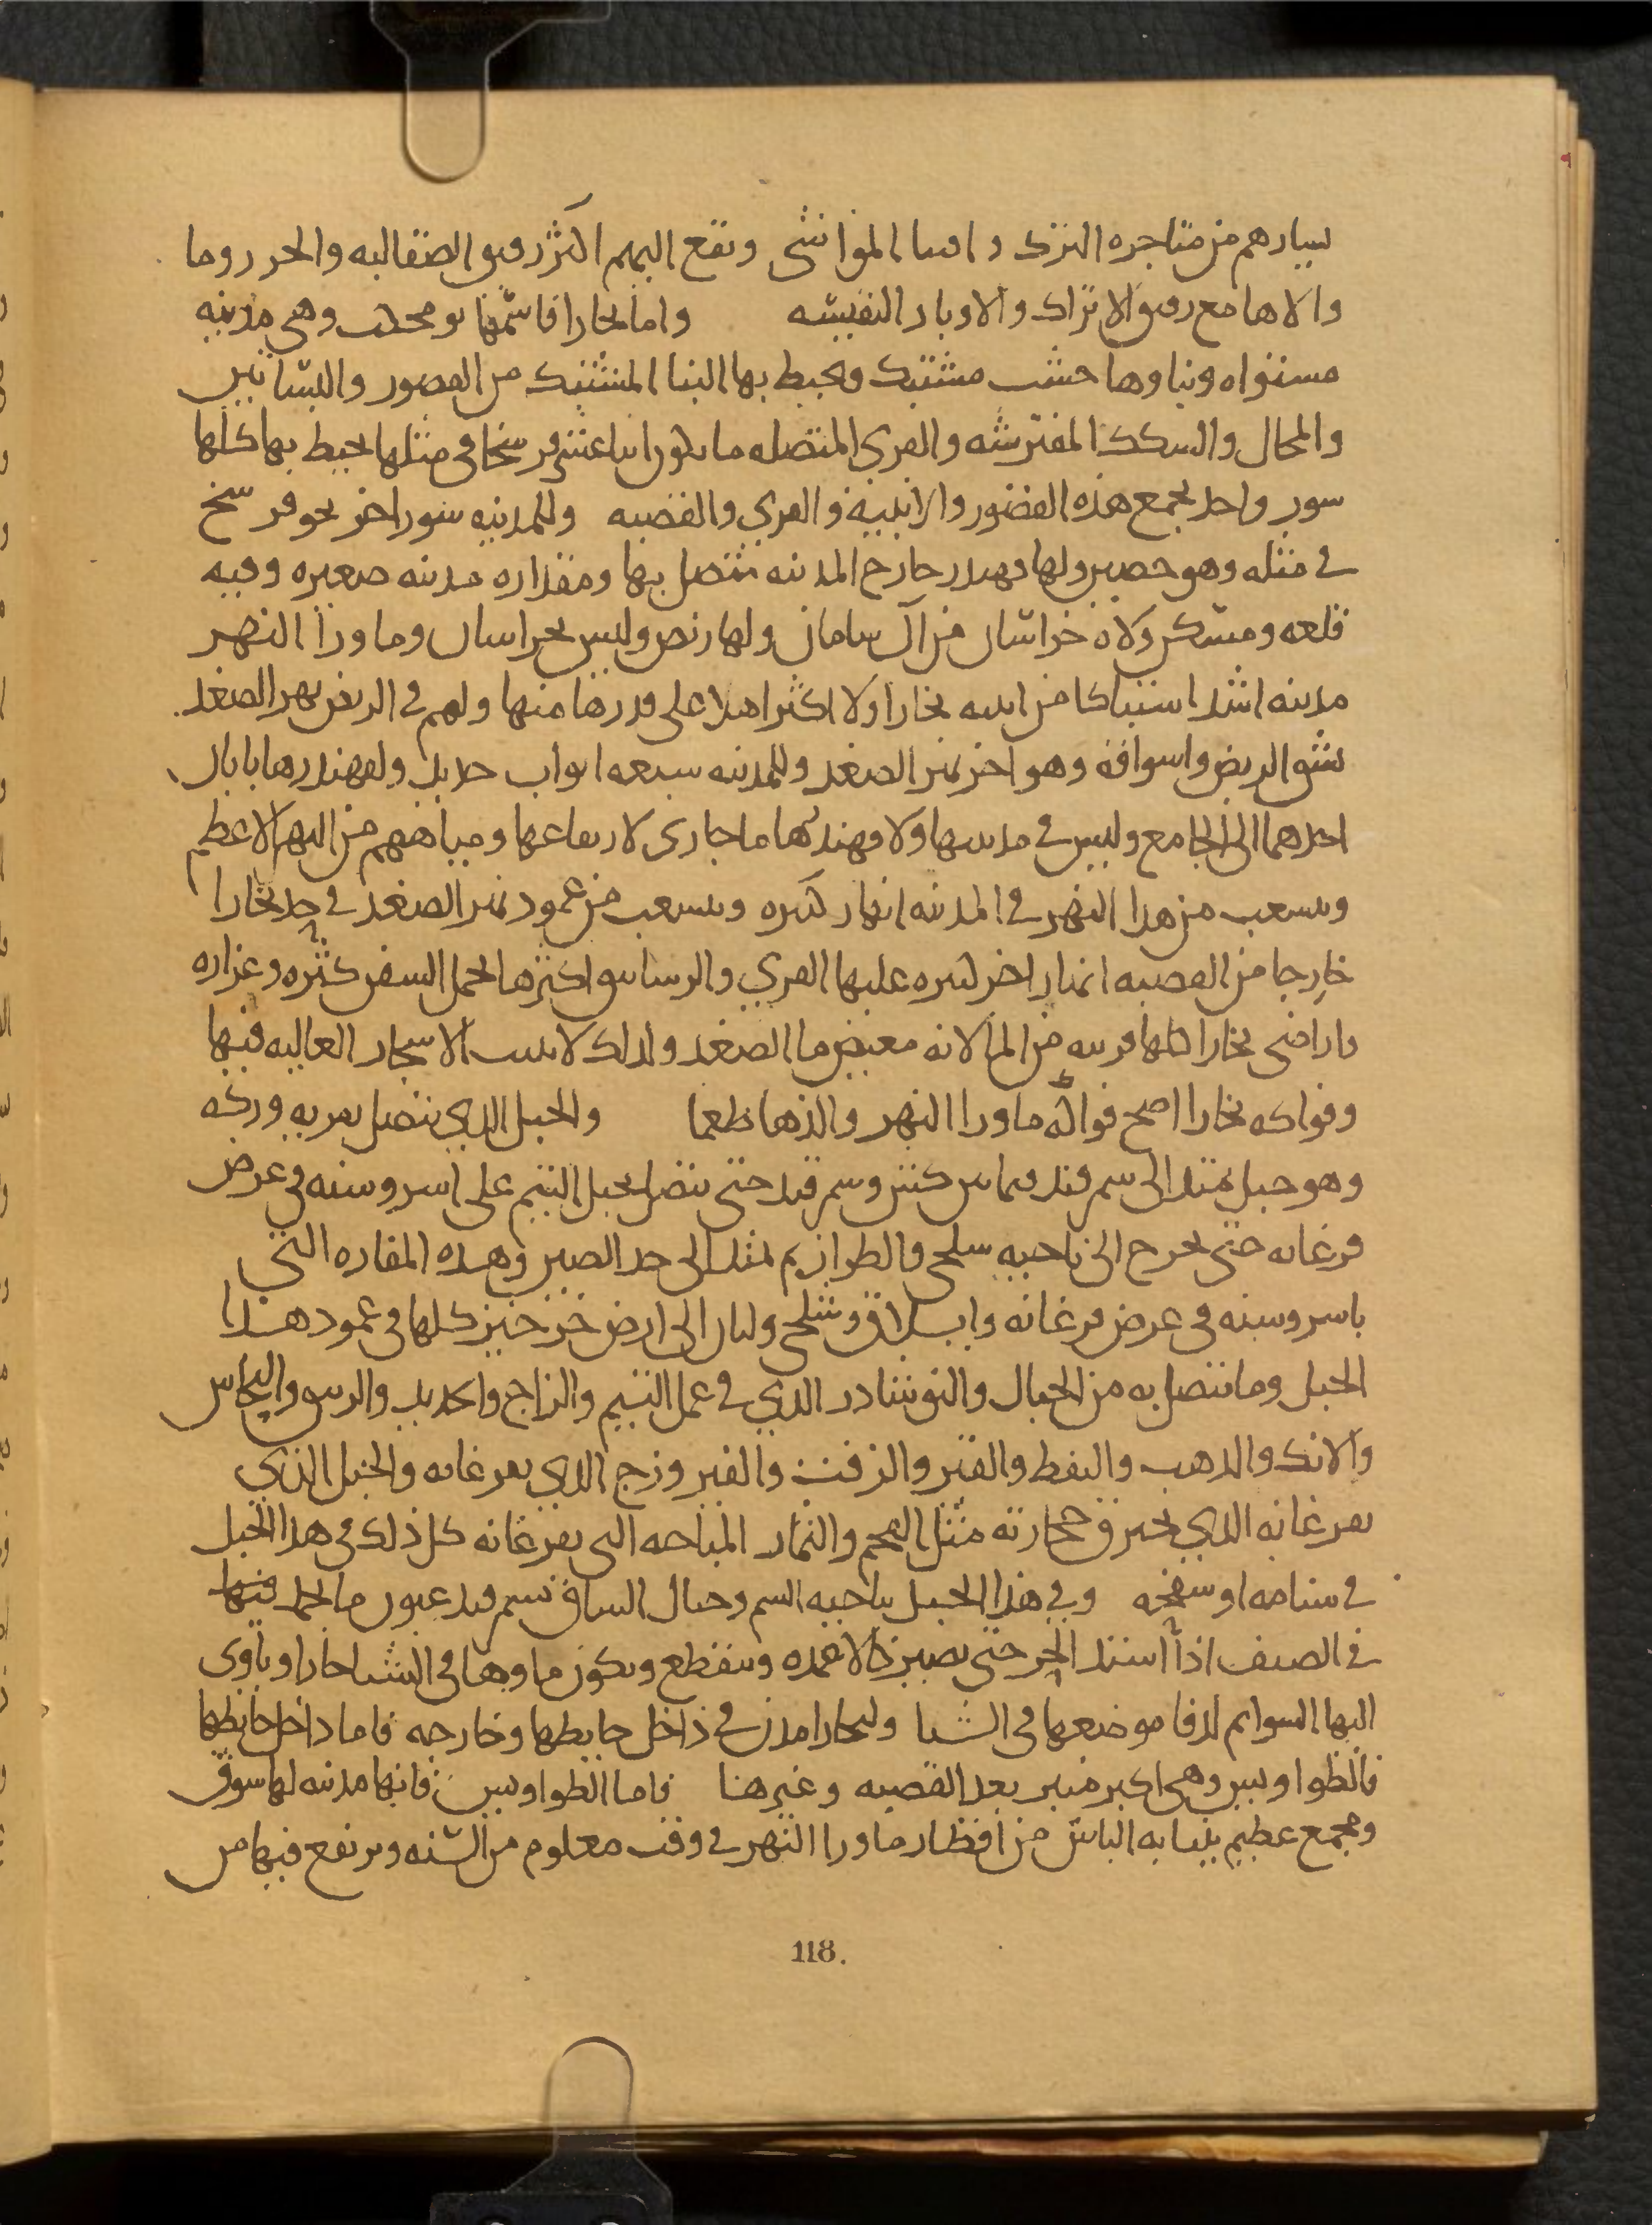 يسارهم من متاجره الترك واقتنا المواشى ويقع اليهم اكثر رقيق الصقالبه والخزر وما
والاها مع رقيق الاتراك والاوبار النفيسه وامابخارا فاسمها بومجكث وهى مدينه
مستواه وبناوها خشب مشتبك ويحيط بها البنا المشتبك من القصور والبساتين
والمحال والسكك المفترشه والقرى المتصله ما يكون اثناعشر فرسخا فى مثلها يحيط بها كلها
سور واحد يجمع هذه القصور والابنيه والقرى والقصبه وللمدينه سور اخر نحو فرسخ
فى مثله وهو حصين ولها قهندز خارج المدينه متصل بها ومقداره مدينه صغيره وفيه
قلعه ومسكن ولاه خراسان من آل سامان ولها ربض وليس بخراسان وماورا النهر
مدينه اشد اشتباكا من ابنيه بخارا ولا اكثر اهلا على قدرها منها ولهم فى الربض نهر الصغد
يشق الربض واسواقه وهو اخر نهر الصغد وللمدينه سبعه ابواب حديد ولقهندزها بابان
احدهما الى الجامع وليس فى مدينتها ولا قهندزها ما جارى لارتفاعها ومياههم من النهر الاعظم
وينشعب من هذا النهر فى المدينه انهار كثيره وينشعب من عمود نهر الصغد فى حد بخارا
خارجا من القصبه انهار اخر كثيره عليها القرى والرساتيق اكثرها تحمل السفن كثره وغزاره
واراضى بخارا كلها قريبه من الما لانه مغيض ما الصغد ولذلك لاينبت الاشجار العاليه فيها
وفواكه بخارا اصح فواكه ماورا النهر والذها طعما والجبل الذى يتصل بقريه وركه
وهو جبل يمتد الى سمرقند فيمابين كش وسمرقند حتى يتصل بجبل البتم على اسروسنه فى عرض
فرغانه حتى يخرج الى ناحيه سلجى والطراز ثم يمتد الى حد الصين وهذه المفازه التى
باسروسنه فى عرض فرغانه وايلاق وشلجى ولبان الى ارض خرخيز كلها فى عمود هذا
الجبل ومايتصل به من الجبال والنوشادر الذى فى عمل البتم والزاج والحديد والزيبق والنحاس
والانك والذهب والنفط والقير والزفت والفيروزج الذى بفرغانه والجبل الذى
بفرغانه الذى يحترق حجارته مثل الفحم والثمار المباحه التى بفرغانه كل ذلك فى هذا الجبل
فى سنامه او سفحه وفى هذا الجبل بناحيه البتم وجبال الساق بسمرقند عيون ما يجمد فيها
فى الصيف اذا اشتد الحر حتى يصير كالاعمده وينقطع ويكون ماوها فى الشتا حارا وياوى
اليها السوايم لدفا موضعها فى الشتا ولبخارا مدن فى داخل حايطها وخارجه فاما داخل حايطها
فالطواويس وهى اكبر منبر بعد القصبه وغيرها فاما الطواويس فانها مدينه لها سوق
ومجمع عظيم ينتابه الناس من اقطار ماورا النهر فى وقت معلوم من السنه ويرتفع فيها من
118.